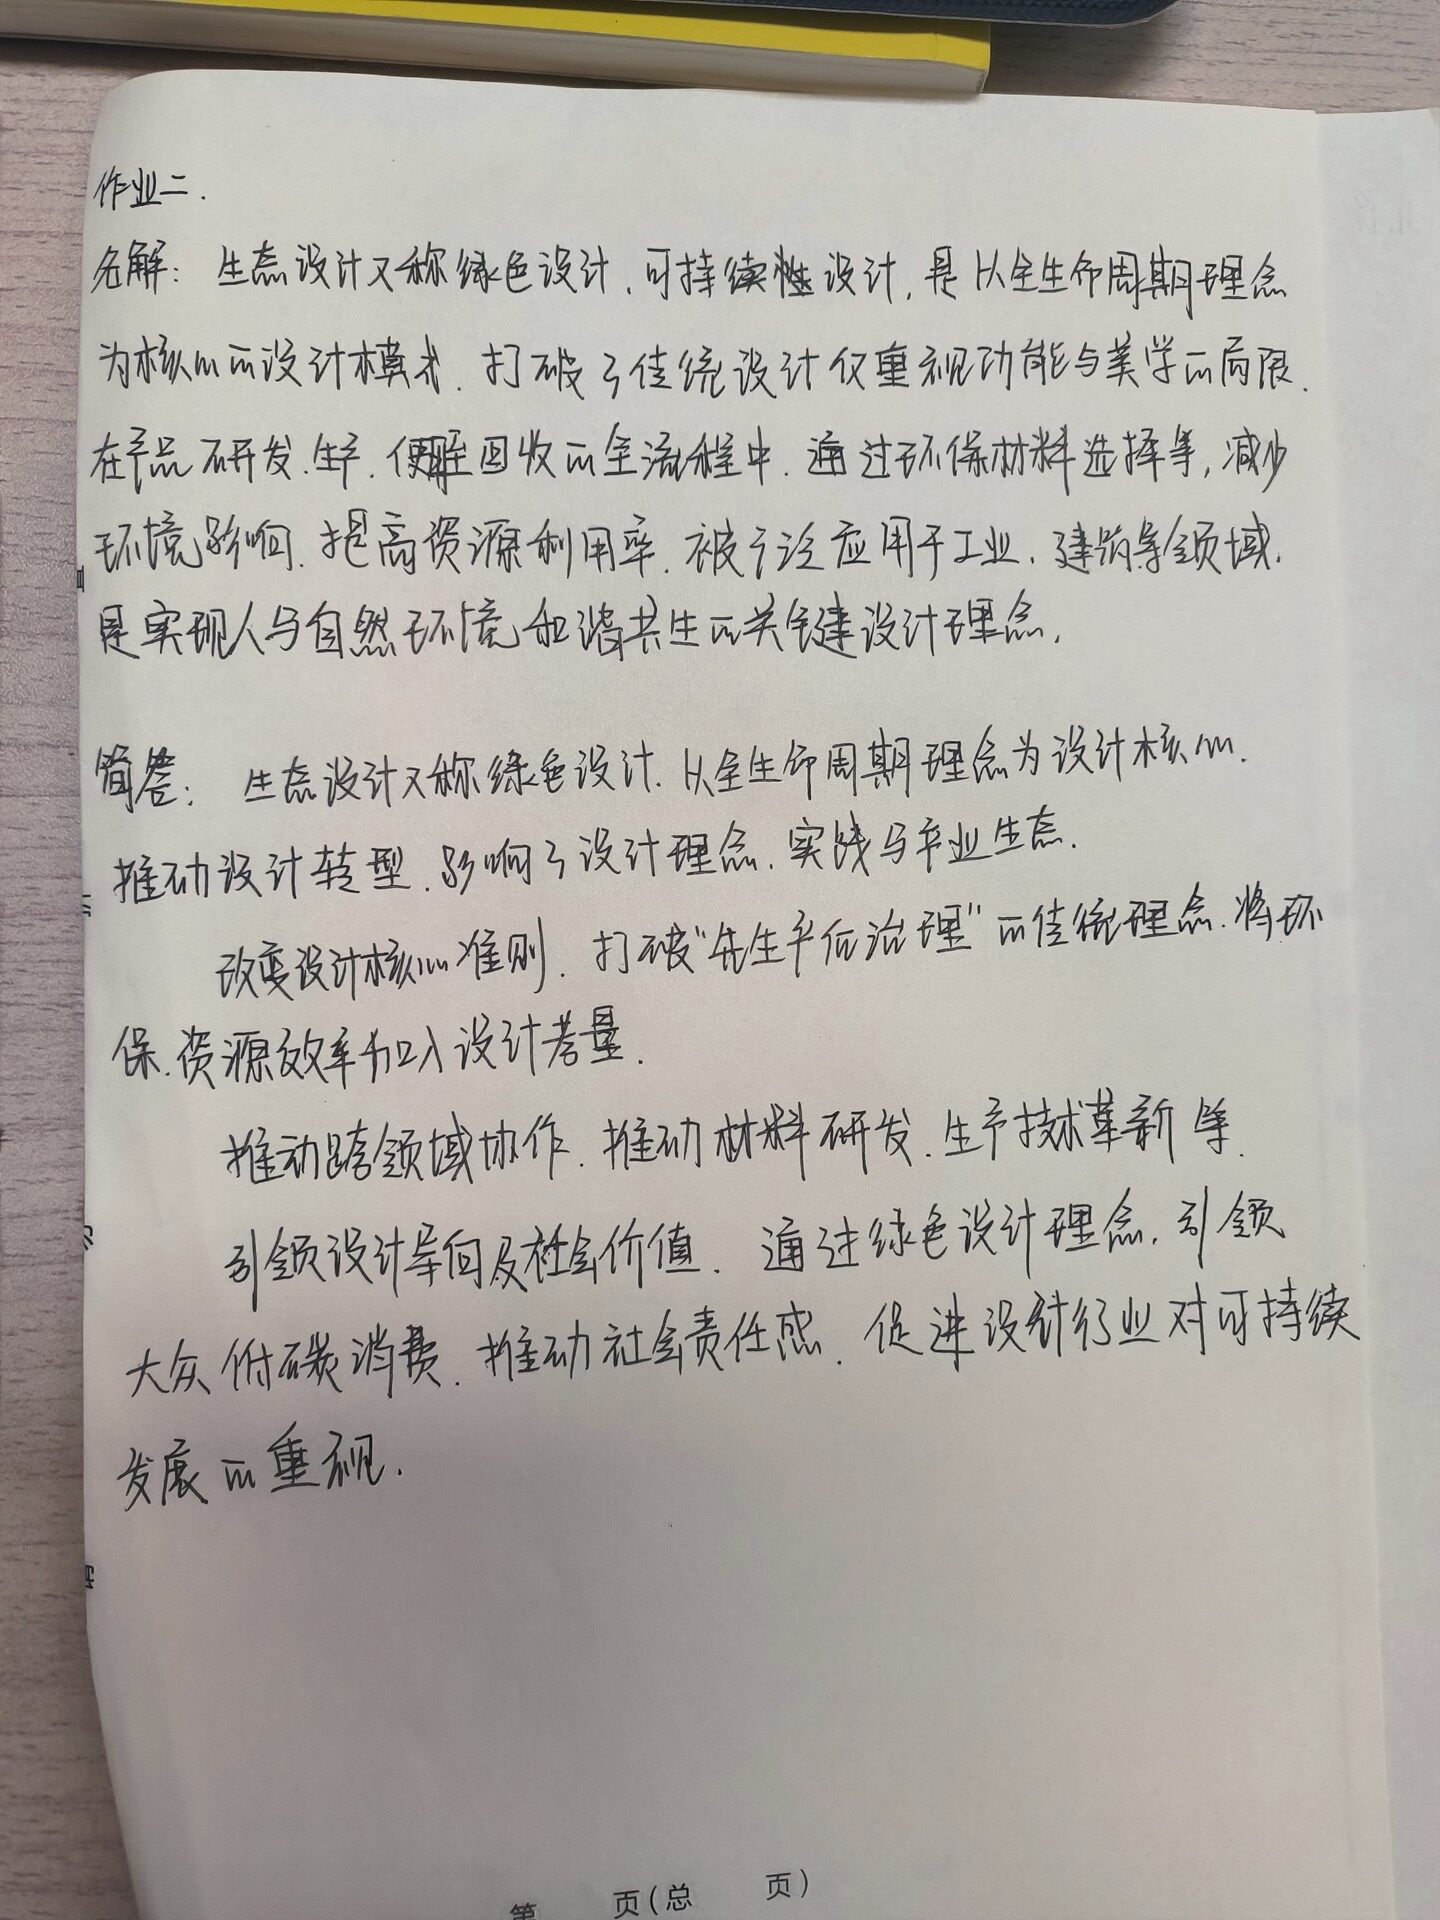 作业二.
名解: 生态设计又称绿色设计、可持续性设计, 是从全生命周期理念
为核心的设计模式. 打破了传统设计仅重视功能与美学的局限.
在产品研发、生产、使用至回收的全流程中. 通过环保材料选择等, 减少
环境影响. 提高资源利用率. 被广泛应用于工业、建筑等领域.
是实现人与自然环境和谐共生的关键设计理念.
简答: 生态设计又称绿色设计. 从全生命周期理念为设计核心.
推动设计转型. 影响了设计理念. 实践与产业生态.
改变设计核心准则. 打破“先生产后治理”的传统理念. 将环
保. 资源效率加入设计考量.
推动跨领域协作. 推动材料研发. 生产技术革新等.
引领设计导向及社会价值. 通过绿色设计理念. 引领
大众低碳消费. 推动社会责任感. 促进设计行业对可持续
发展的重视.
第 页(总 页)